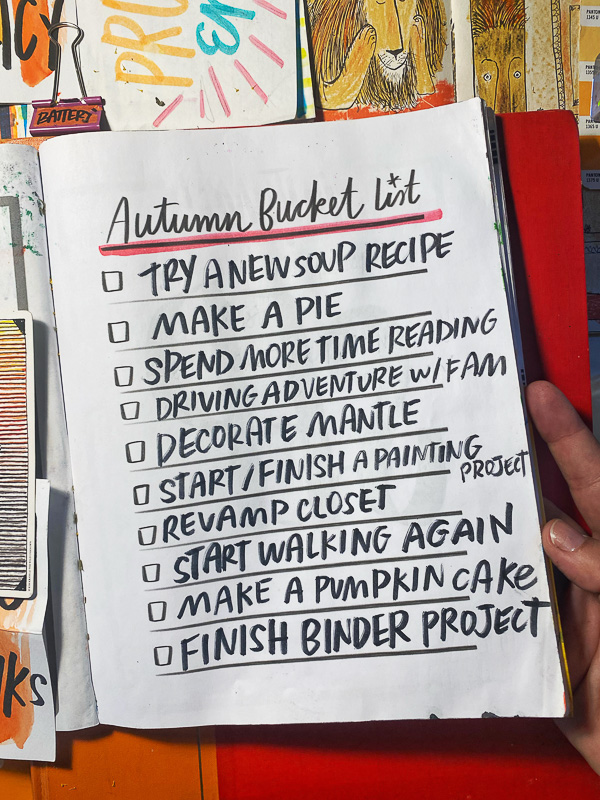 ACY
BATTERY
PRO
EN
PANTONE
PANTONE
Autumn Bucket list*
TRY A NEW SOUP RECIPE
MAKE A PIE
SPEND MORE TIME READING
DRIVING ADVENTURE W/FAM
DECORATE MANTLE
START/FINISH A PAINTING
PROJECT
REVAMP CLOSET
START WALKING AGAIN
MAKE A PUMPKIN CAKE
FINISH BINDER PROJECT
KS